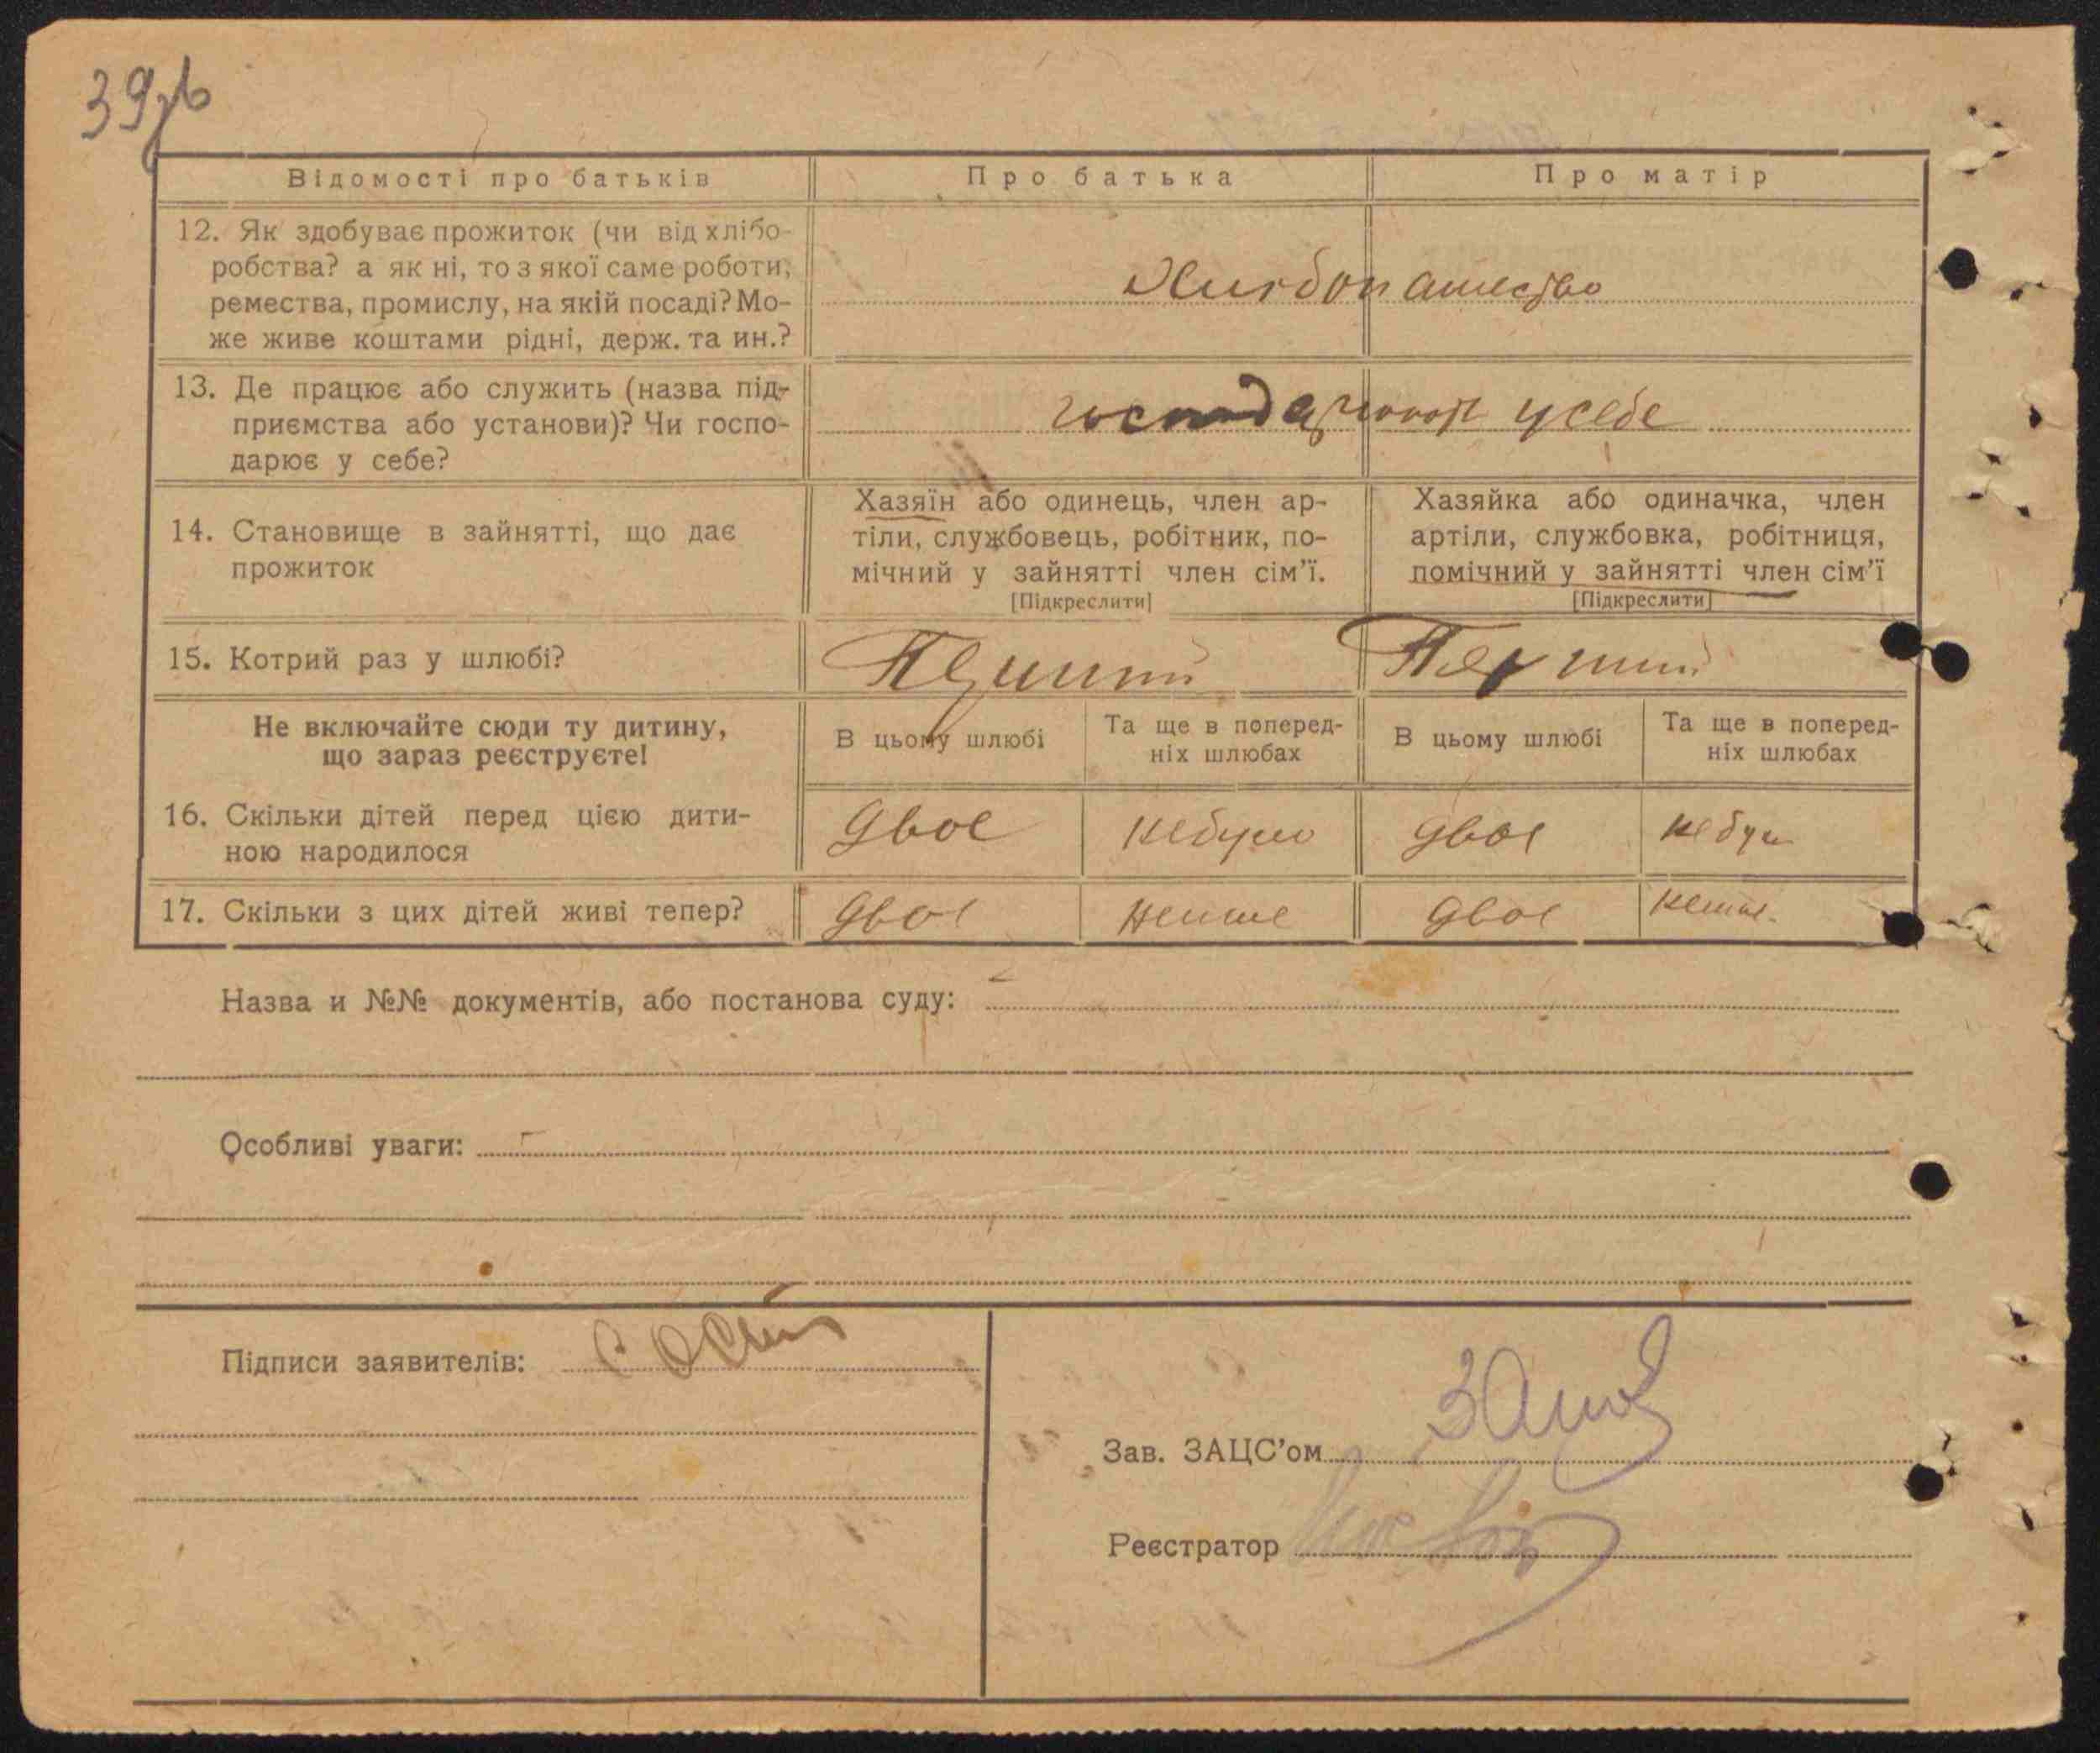 39зв
Відомості про батьків
Про батька
Про матір
12. Як здобуває прожиток (чи від хлібо-
робства? а як ні, то з якої саме роботи,
ремества, промислу, на якій посаді? Мо-
же живе коштами рідні, держ. та ин.?
13. Де працює або служить (назва під-
приємства або установи)? Чи госпо-
дарює у себе?
у себе
14. Становище в зайнятті, що дає
прожиток
Хазяїн або одинець, член ар-
тіли, службовець, робітник, по-
мічний у зайнятті член сім'ї.
[Підкреслити]
Хазяйка або одиначка, член
артіли, службовка, робітниця,
помічний у зайнятті член сім'ї
[Підкреслити]
15. Котрий раз у шлюбі?
Перший
Перший
Не включайте сюди ту дитину,
що зараз реєструєте!
В цьому шлюбі
Та ще в поперед-
ніх шлюбах
В цьому шлюбі
Та ще в поперед-
ніх шлюбах
16. Скільки дітей перед цією дити-
ною народилося
двоє
небуло
двоє
17. Скільки з цих дітей живі тепер?
двоє
двоє
Назва и №№ документів, або постанова суду:
Особливі уваги:
Підписи заявителів:
Зав. ЗАЦС'ом
Реєстратор